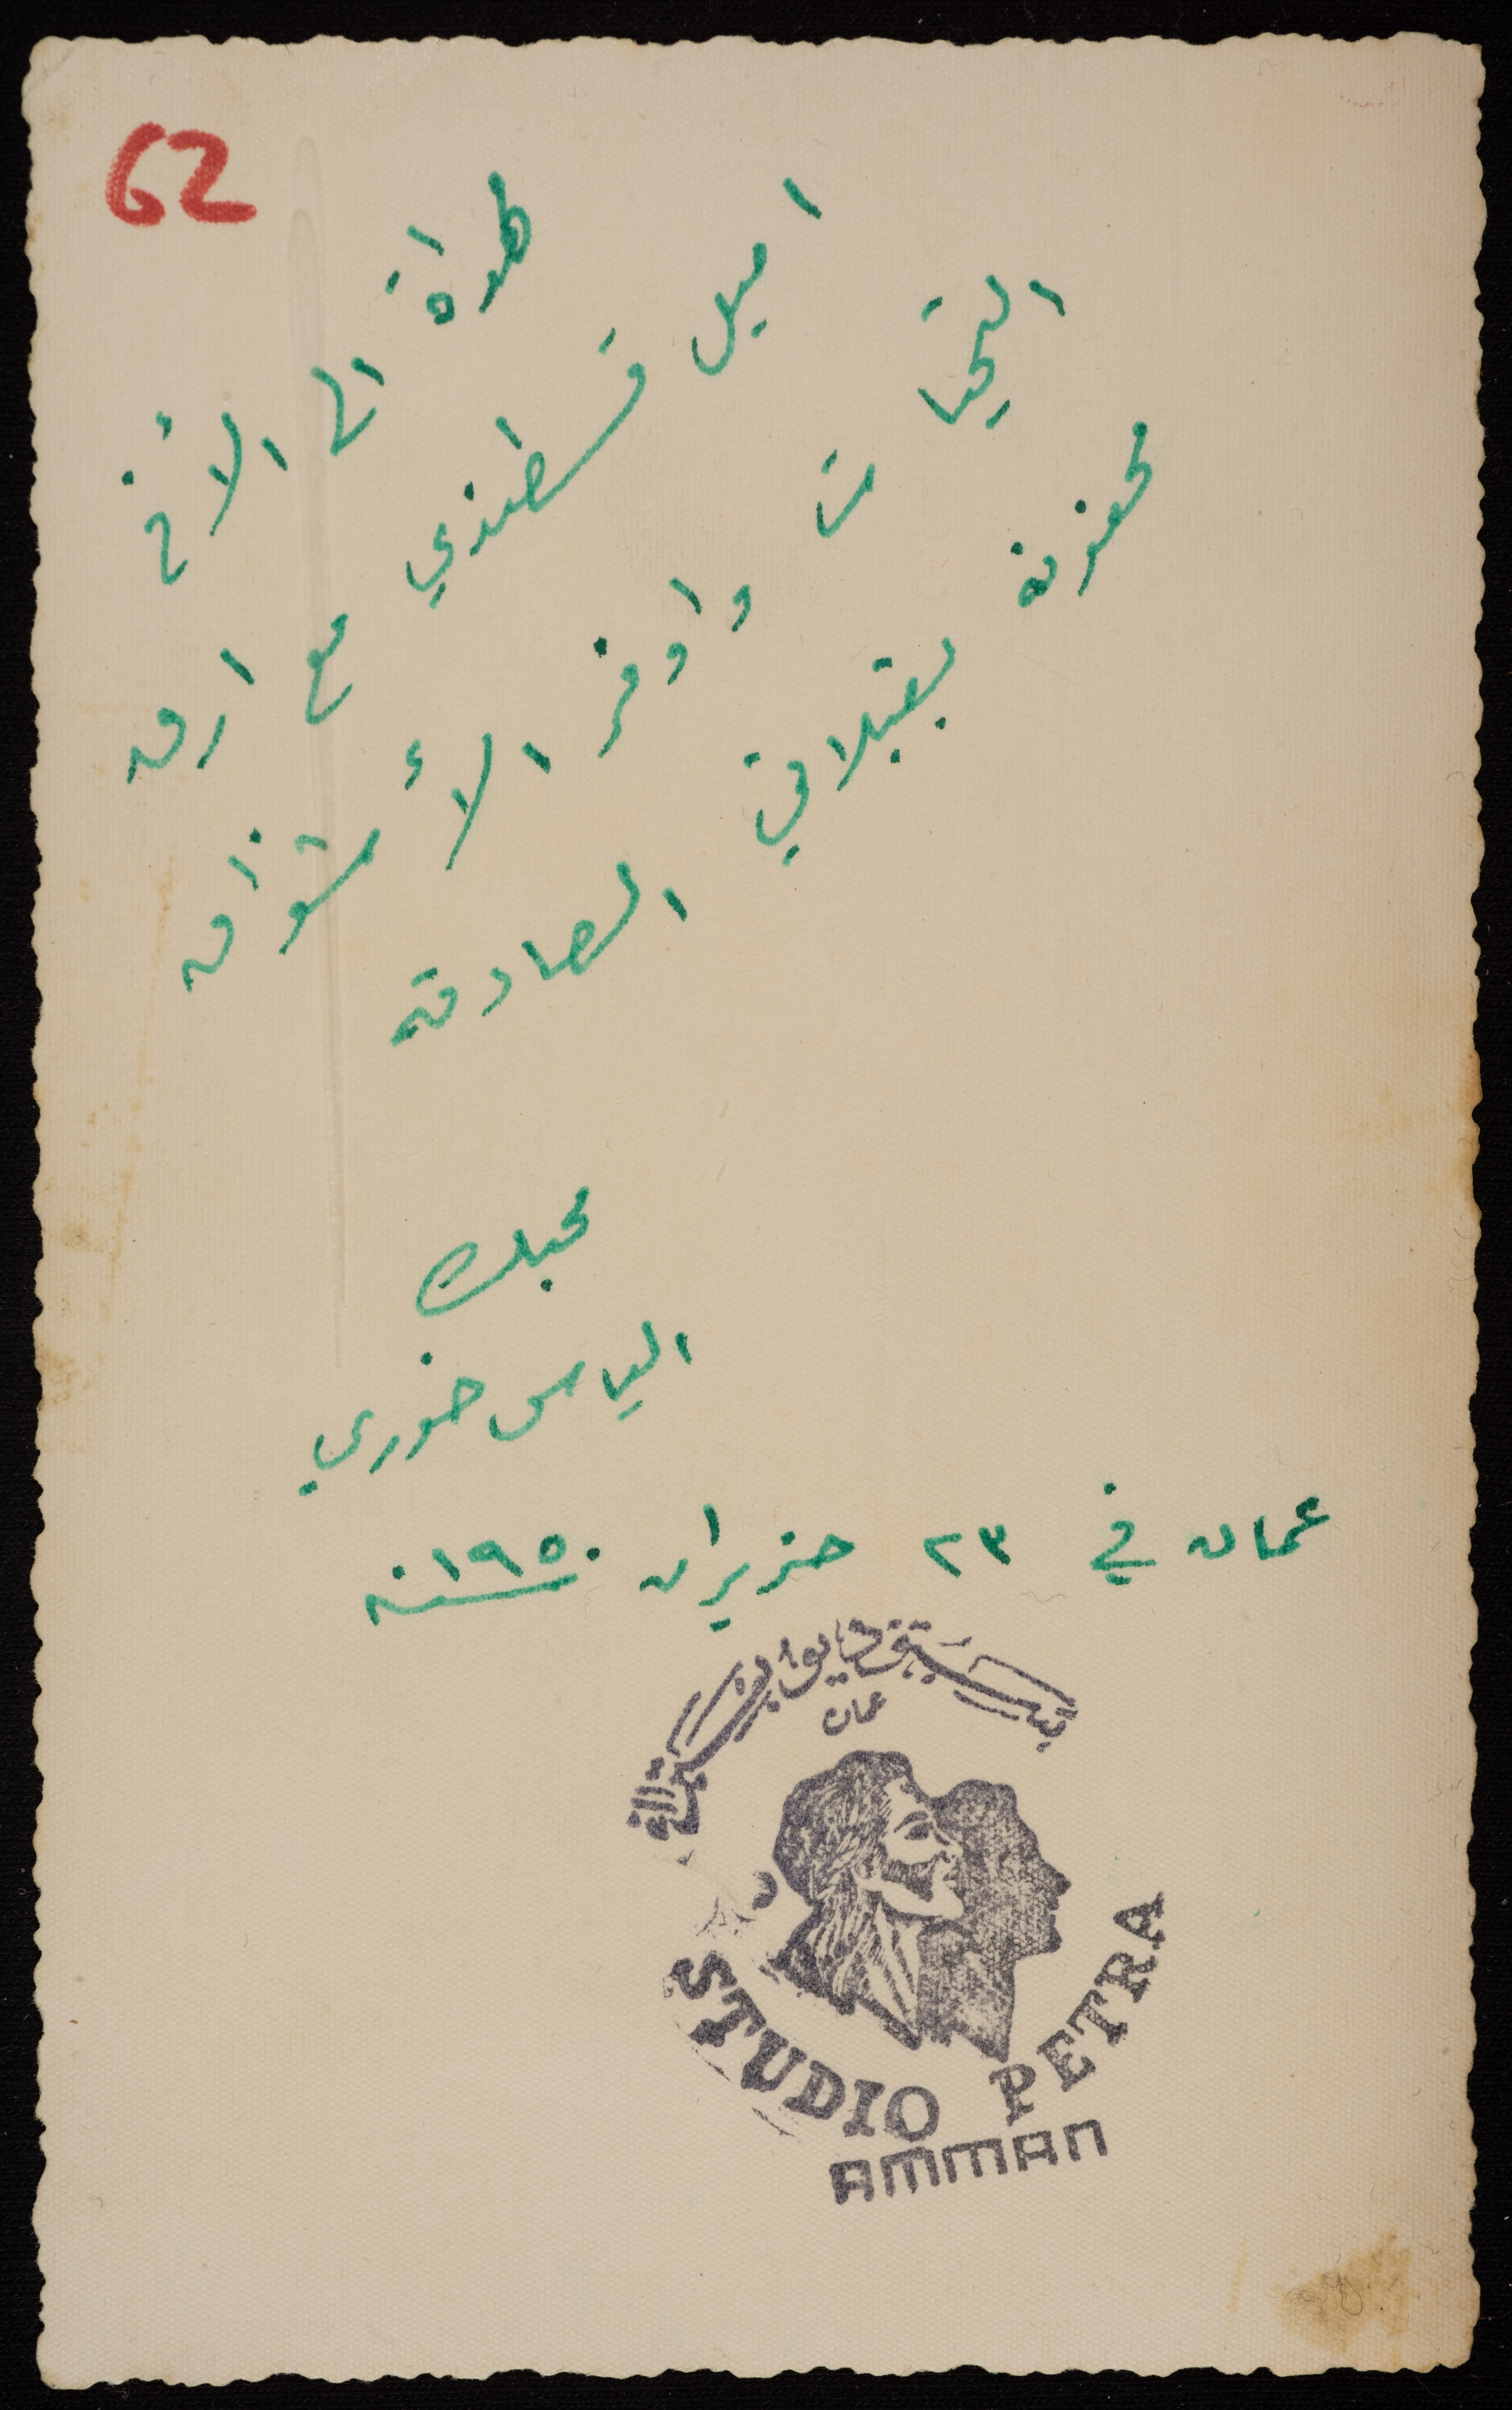 62
هداة الى الأخ
اميل قسطندي مع ارق
التحيات واوفر الأشواق
محفوفة بقبلاتي الصادقة
محبك
الياس خوري
عمان في ٢٣ حزيران سنة ١٩٥٠
ستوديو بترا
عمان
STUDIO PETRA
AMMAN